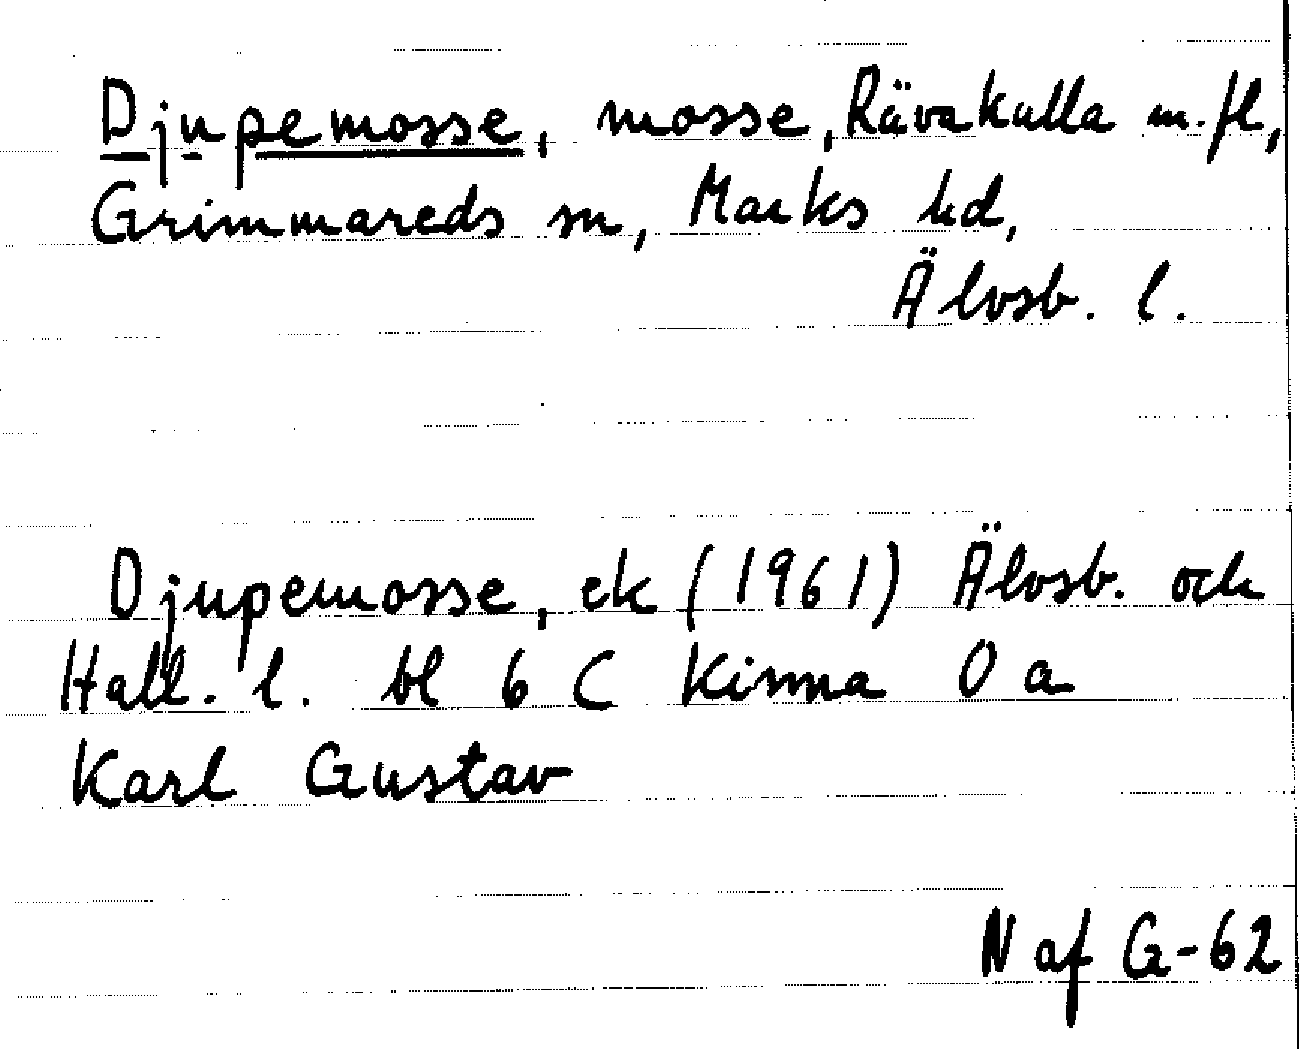 Djupemosse, mosse, Rävakulla m.fl,
Grimmareds sn, Marks hd,
Älvsb. l.
Djupemosse, ek (1961) Älvsb. och
Hall. l. bl 6 C Kinna 0 a
Karl Gustav
N af G-62